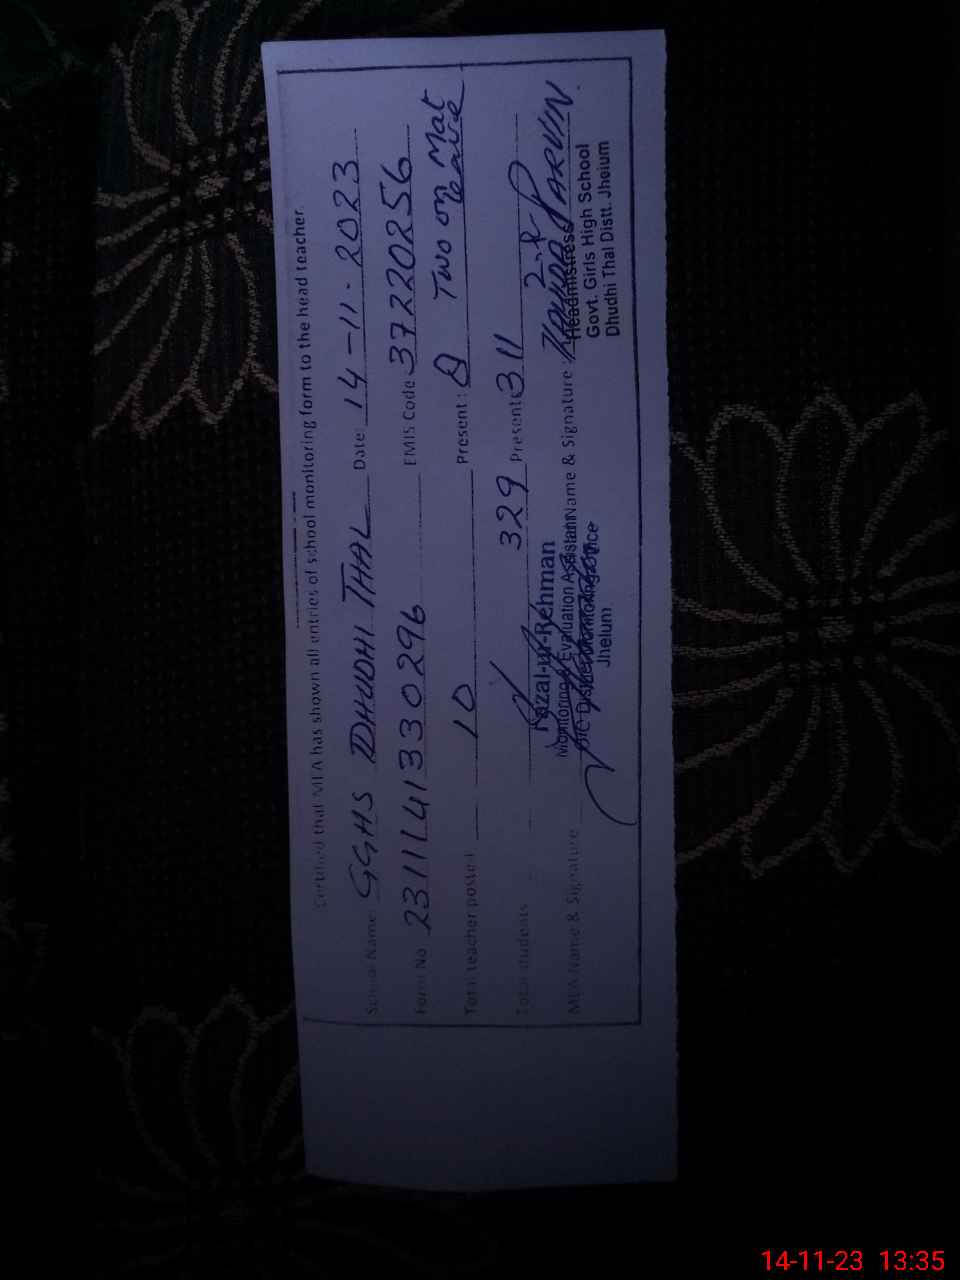 Certified that MEA has shown all entries of school monitoring form to the head teacher.
School Name: GGHS DHUDHI THAL Date: 14-11-2023
Form No 2311141330296 EMIS Code 37220256
Total teacher posted 10 Present: 8 Two on Mat leave
Total students 329 Present 311
MEA Name & Signature Name & Signature:
Fazal-ur-Rehman
Monitoring & Evaluation Assistant
District Monitoring Office
Jhelum
PARVIN
Headmistress
Govt. Girls High School
Dhudhi Thal Distt. Jhelum
14-11-23 13:35